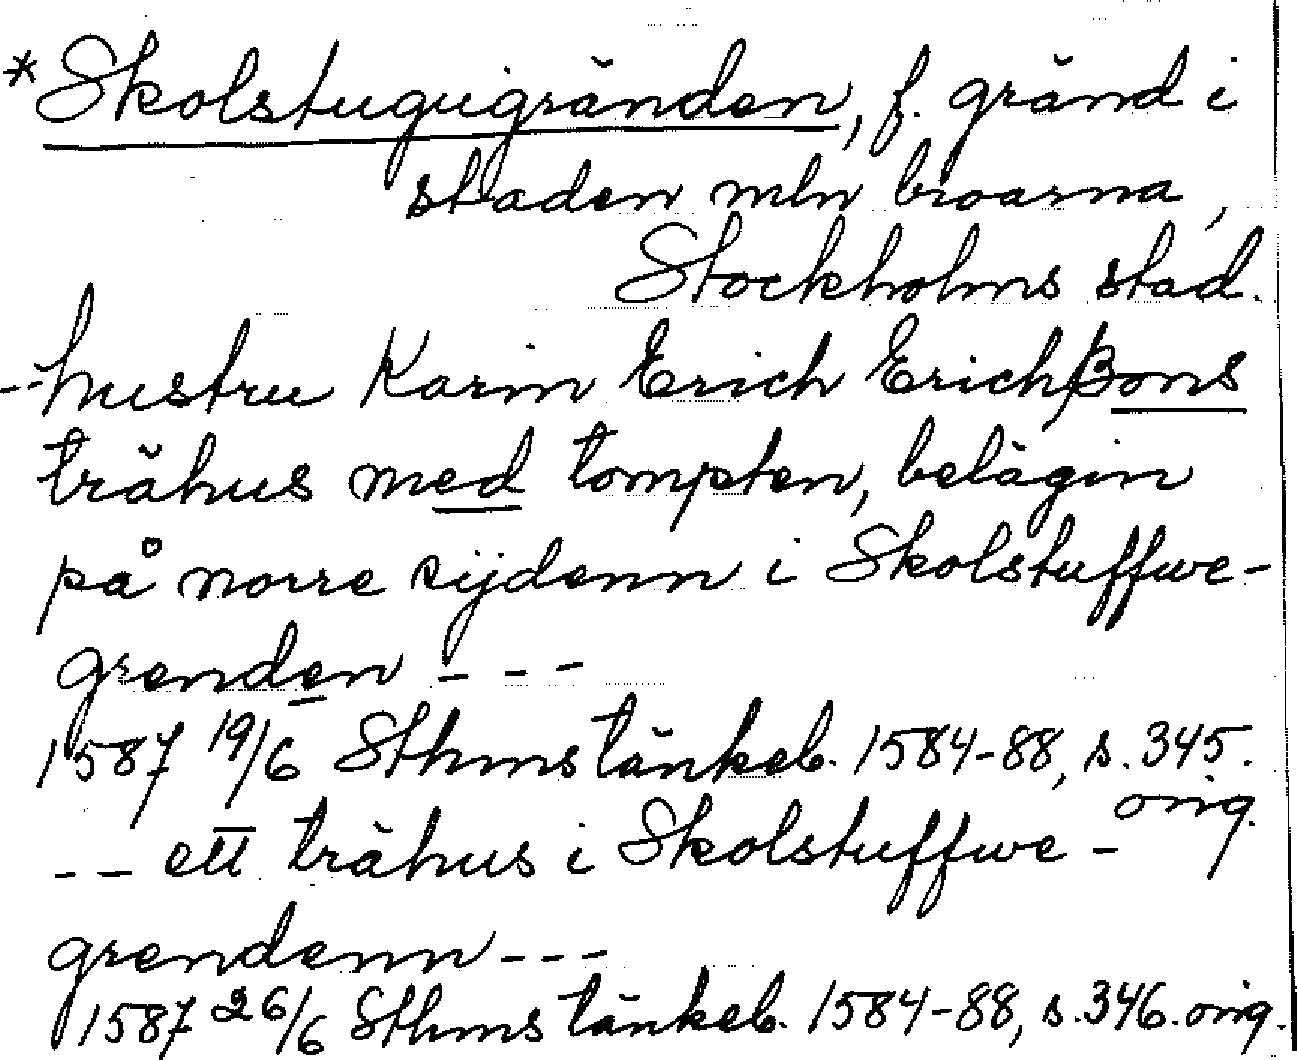 *Skolstugugränden, f. gränd i
staden mln broarna,
Stockholms stad.
-- hustru Karin Erich Erichßons
trähus med tompten, belägin
på norre sijdenn i Skolstuffwe-
grenden - - -
1587 19/6 Sthms tänkeb. 1584-88, s. 345.
orig.
- - ett trähus i Skolstuffwe-
grendenn - - -
1587 26/6 Sthms tänkeb. 1584-88, s. 346. orig.